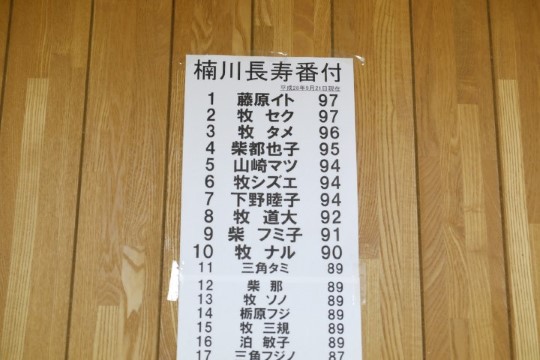 楠川長寿番付
平成26年9月21日現在
1 藤原イト 97
2 牧 セク 97
3 牧 タメ 96
4 柴都也子 95
5 山崎マツ 94
6 牧シズエ 94
7 下野睦子 94
8 牧 道大 92
9 柴 フミ子 91
10 牧 ナル 90
11 三角タミ 89
12 柴 那 89
13 牧 ソノ 89
14 栃原フジ 89
15 牧 三規 89
16 泊 敏子 89
17 三角フジノ 87